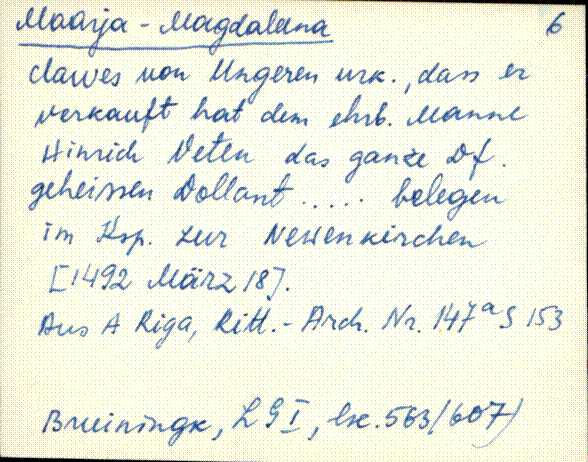 Maarja-Magdaleena 6
Clawes von Ungeren urk., dass er
verkauft hat dem ehrb. Manne
Hinrich Veten das ganze Df.
geheissen Dollant ..... belegen
im Ksp. zur Newenkirchen
[1492 März 18].
Aus A Riga, Ritt.-Arch. Nr. 147a S 153
Bruiningk, LG I, lk. 563/607)